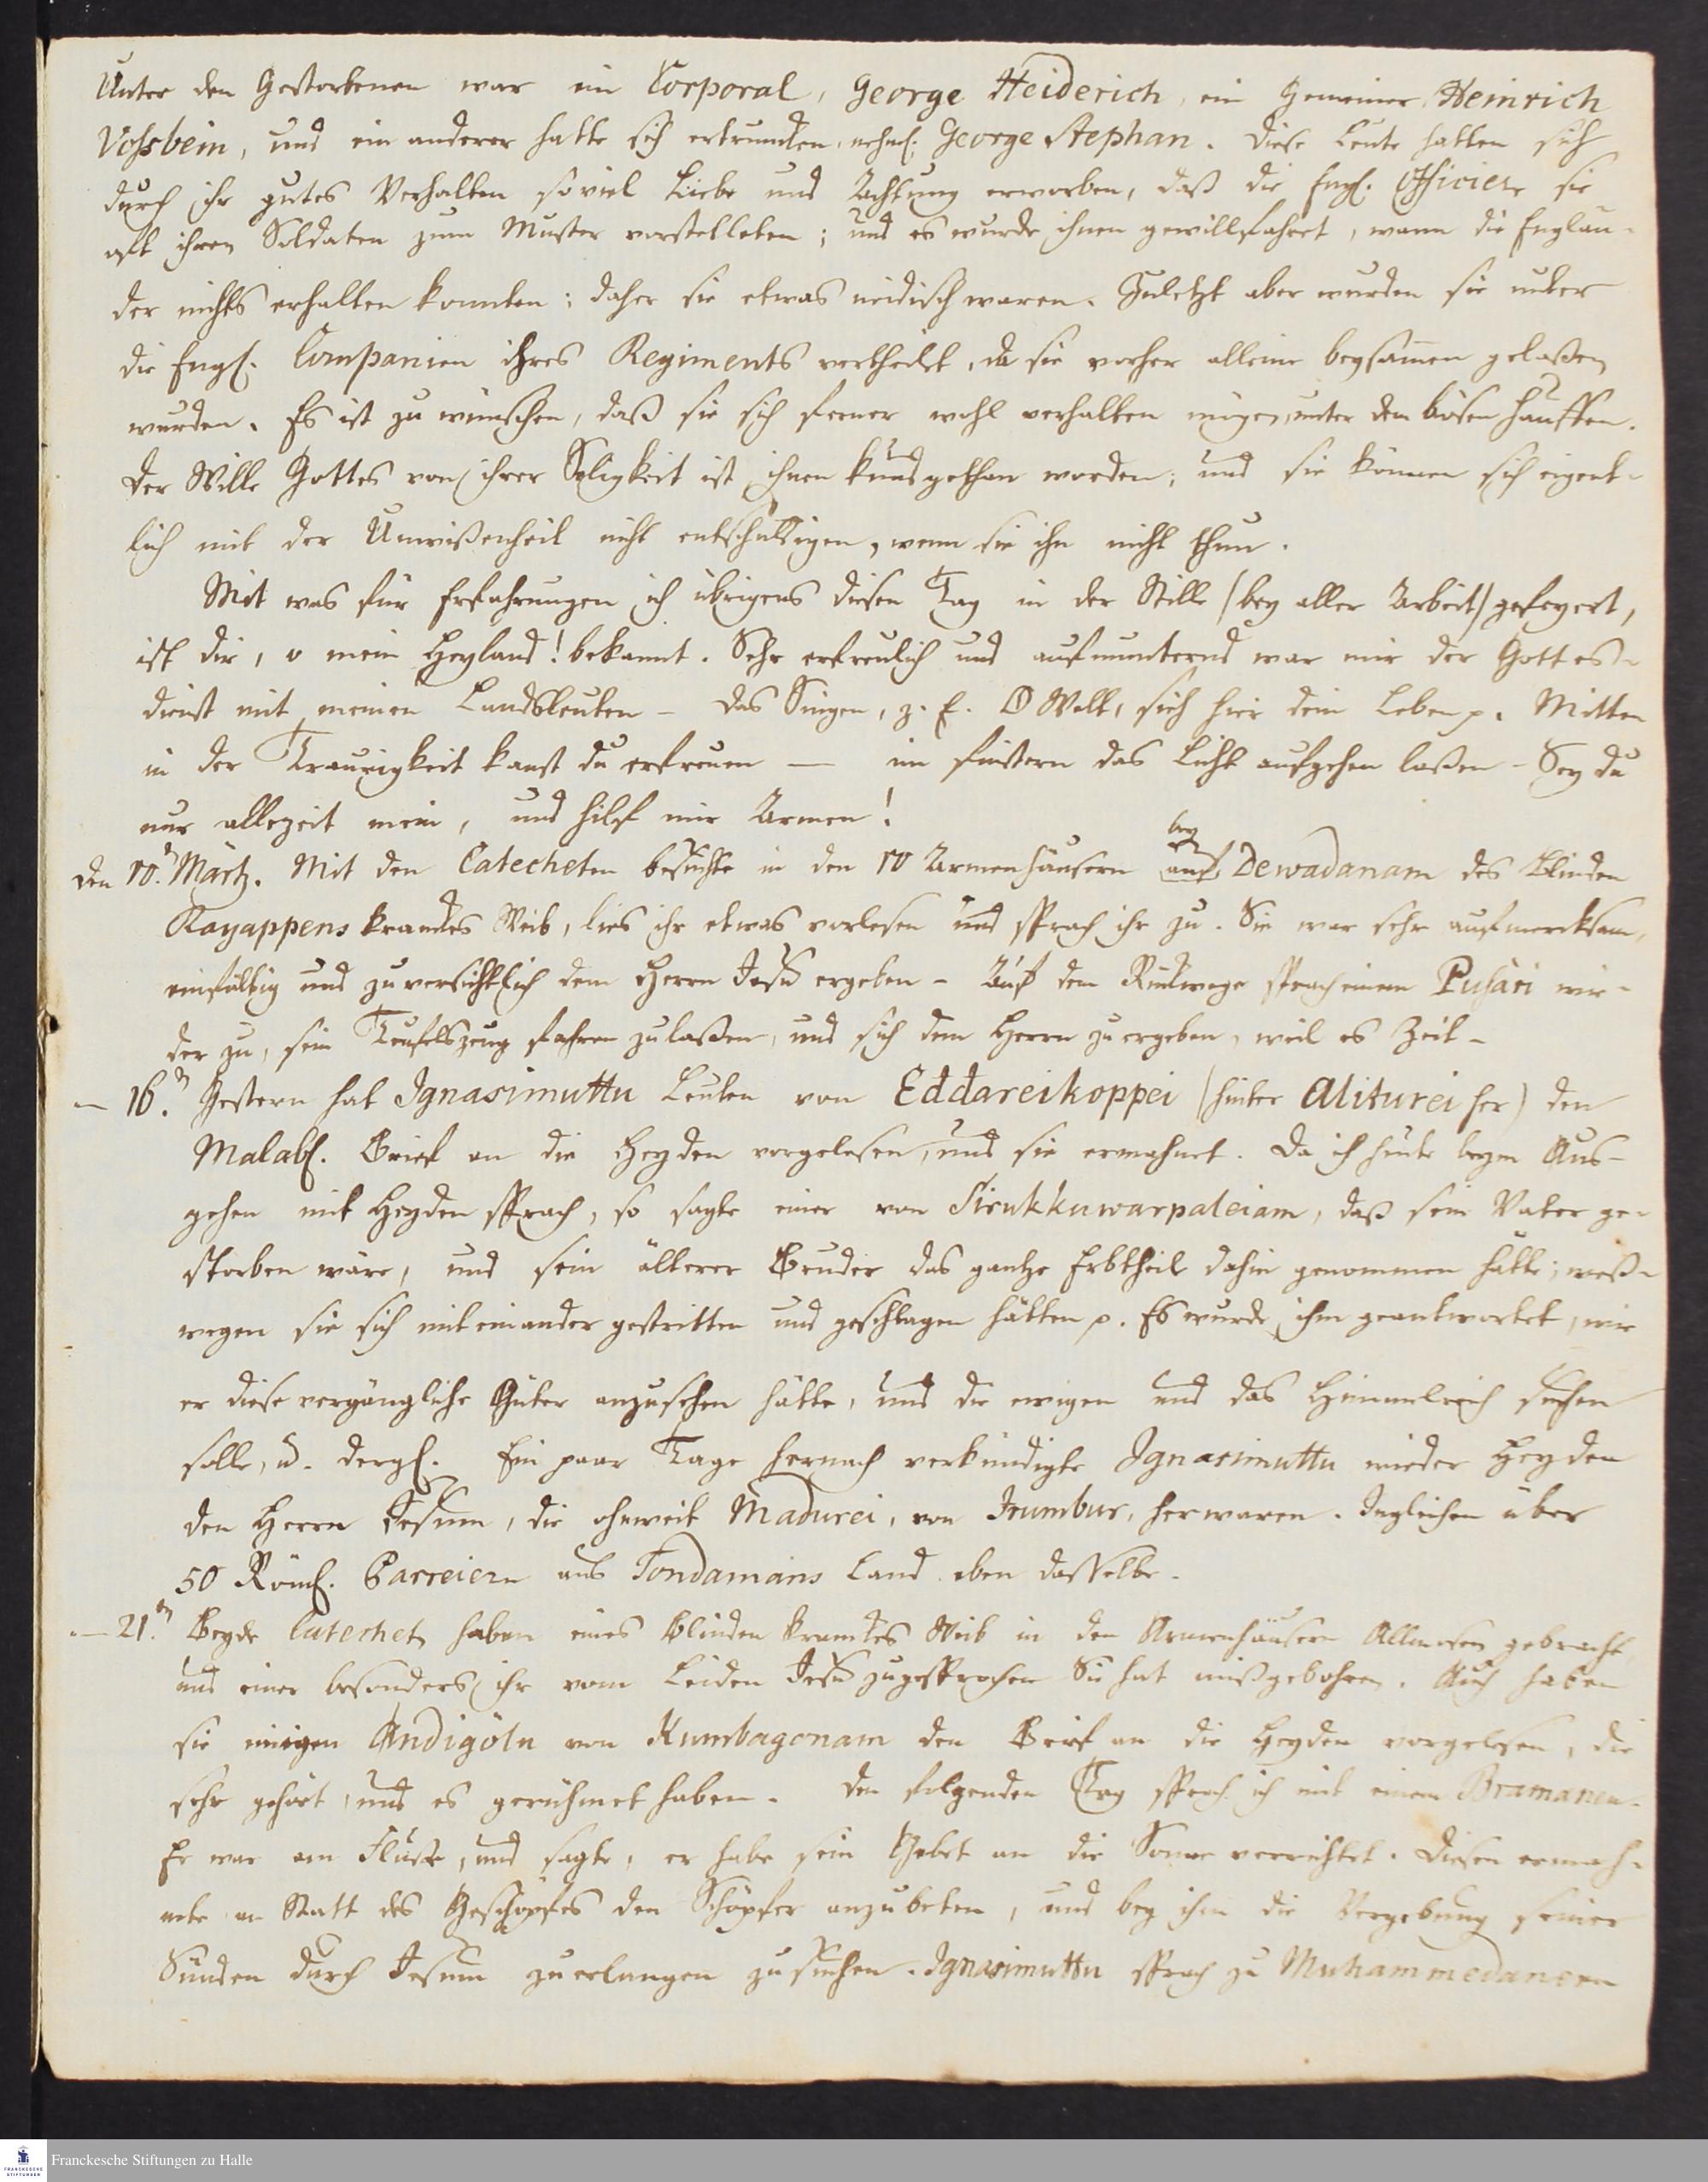 Unter den Gestorbenen war ein Corporal, George Heiderich, ein Gemeiner Heinrich
Vossbein, und ein anderer hatte sich ertruncken, nehml. George Stephan. Diese Leute hatten sich
durch ihr gutes Verhalten soviel Liebe und Achtung erworben, daß die Engl. Officiers sie
oft ihren Soldaten zum Muster vorstelleten; und es wurde ihnen gewillfahret, wann die Englän-
der nichts erhalten konnten; daher sie etwas neidisch waren. Zuletzt aber wurden sie unter
die Engl. Companien ihres Regiments vertheilet, da sie vorher alleine beysamen gelaßen
wurden. Es ist zu wünschen, daß sie sich ferner wohl verhalten mögen, unter dem bösen Hauffen.
Der Wille Gottes von ihrer Seligkeit ist ihnen kund gethan worden; und sie können sich eigent-
lich mit der Unwißenheit nicht entschuldigen, wenn sie ihn nicht thun.
Mit was für Erfahrungen ich übrigens diesen Tag in der Stille (bey aller Arbeit) gefeyert,
ist dir, o mein Heyland! bekannt. Sehr erfreulich und aufmunternd war mir der Gottes-
dienst mit meinen Landsleuten - Das Singen, z. E. O Welt, sieh hier dein Leben p. Mitten
in der Traurigkeit kanst du erfreuen — im finstern das Licht aufgehen laßen - Sey du
nur allezeit mein, und hilf mir Armen!
bey
Den 10. Martz. Mit den Catecheten besuchte in den 10 Armenhäusern auf Dewadanam des Blinden
Rayappens kranckes Weib, lies ihr etwas vorlesen und sprach ihr zu. Sie war sehr aufmercksam,
einfältig und zuversichtlich dem Herrn Jesu ergeben - Auf dem Rückwege sprach einem Pusari wie-
der zu, sein Teufelszeug fahren zu laßen, und sich dem Herrn zu ergeben, weil es Zeit -
— 16.n Gestern hat Ignasimuttu Leuten von Eddareikoppei (hinter Aliturei her) den
Malabl. Brief an die Heyden vorgelesen, und sie ermahnet. Da ich heute beym Aus-
gehen mit Heyden sprach, so sagte einer von Sirukkuwarpaleiam, daß sein Vater ge-
storben wäre, und sein älterer Bruder das gantze Erbtheil dahin genommen hätte; weß-
wegen sie sich mit einander gestritten und geschlagen hätten p. Es wurde ihm geantwortet, wie
er diese vergängliche Güter anzusehen hätte, und die ewigen und das Himmelreich suchen
solle, u. dergl. Ein paar Tage hernach verkündigte Ignasimuttu wieder Heyden
den Herrn Jesum, die ohnweit Madurei, von Irumbur, her waren. Ingleichen über
50 Röml. Parreiern aus Tondamans Land eben dasselbe.
— 21.n Beyde Catechet. haben eines Blinden kranckes Weib in den Armenhäusern Allmosen gebracht,
und einer besonders ihr vom Leiden Jesu zugesprochen Sie hat mißgebohren. Auch haben
sie einigen Andigöln von Kumbagonam den Brief an die Heyden vorgelesen, die
sehr gehört, und es gerühmet haben. Den folgenden Tag sprach ich mit einem Bramanen.
Er war am Fluße, und sagte, er habe sein Gebet an die Sonne verrichtet. Diesen ermah-
nete an Statt des Geschöpfes den Schöpfer anzubeten, und bey ihm die Vergebung seiner
Sünden durch Jesum zu erlangen zu suchen. Ignasimuttu sprach zu Muhammedanern
Franckesche Stiftungen zu Halle